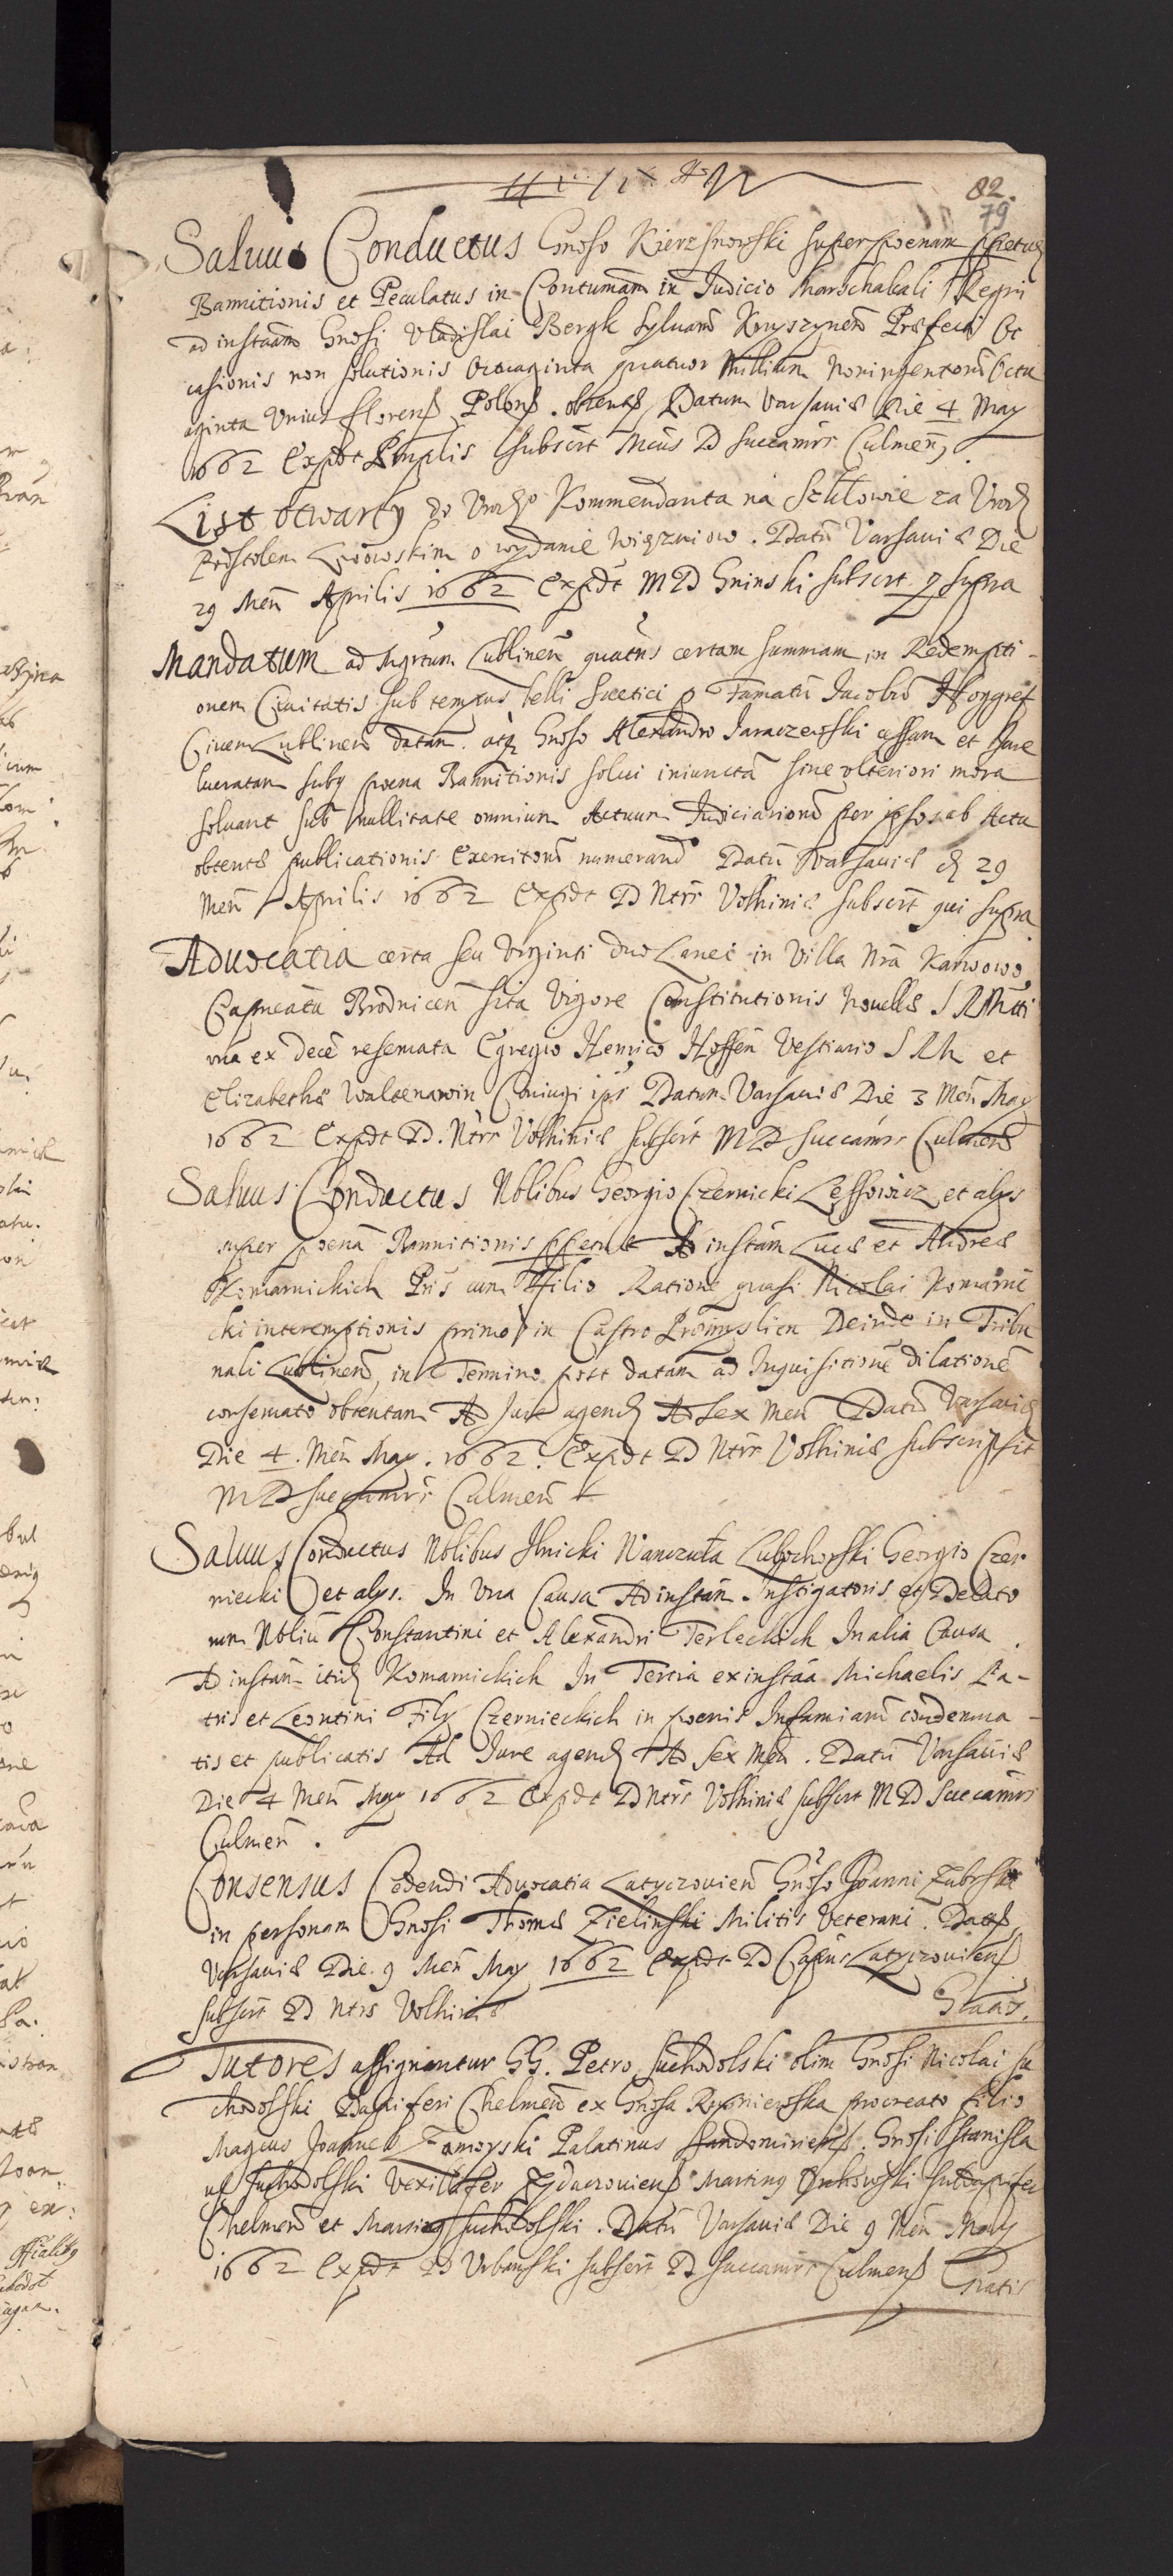 82.
79
Saluus Conductus Gnoso Kierznowski super poenam
Bannitionis et Peculatus in Contumam in Judicio Marschalcali Regni
ad instaām Gnosi Vladislai Bergk Syluarū Knyszynen Praefecti Oc
casionis non solutionis Octuaginta quatuor Millium Noningentorū Octu
aginta Vnius florens Polons. obtents Datum Varsauiae Die 4 May
1662 Expdt subscrt Mcus D Succamrs Culmen,
List otwarty do Vrodzo Kommendanta na Szkłowie za Vrodz
Lwowskim o wydanie więzniow. Datū Varsauiae Die
29 Men Aprilis 1662 Expdt M D Gninski subscrt q supra
Mandatum ad Mgrtum Lublinen quatns certam summam in Redempti-
onem Ciuitatis sub tempus belli Suetici p Famatū Jacobū
Ciuem Lublinen datam. atq Gnoso Alexandro Jaraczewski cessam et Jure
lucratam subq poena Bannitionis solui iniunctā sine vlteriori mora
soluant sub nullitate omnium Actuum Judiciariorū per ipsos ab Actu
obtentae publicationis Exercitorū numerand Datū Varsauiae d 29
Men Aprilis 1662 Expdt D Ntrs Volhiniae subscrt qui supra
Aduocatia certa seu Viginti duo Lanei in Villa Nrā Karwowo
Capneatu Brodnicen sita Vigore Constitutionis Nouellae S R Mtti
vna ex decē reseruata Egregio Henrico Hoffen Vestiario S R M et
Elizabethae Waltenarowin Coniugi ips Datum Varsauiae Die 3 Men May
1662 Expdt D. Ntrs Volhiniae subscrt M D Succamrs Culmens
Saluus Conductus Nblibus Georgio Czernicki Lessowicz et alys
super poenā Bannitionis Ad instām Lucae et Andreae
Komarnickich Pris cum Filio Ratione quasi Nicolai Komarni
cki interemptionis primo in Castro Praemyslien Deinde in Tribu
nali Lublinen, in Termino post datam ad Inquisitionē dilationē
conseruato obtentam Ad Jure agend Ad sex Men Datū Varsauiae
Die 4. Men May. 1662. Expdt D Ntrs Volhiniae subscripsit
M D Succamrs Culmen
Saluus Conductus Nblibus Ilnicki Wanczuła Lubochorski Georgio Czer
niecki et alys. In Vna Causa Ad instān Instigatoris et Delato
rum Nbliū Constantini et Alexandri Terleckich In alia Causa
Ad instān itid Komarnickich In Tertia ex instāa Michaelis Pa-
tris et Leontini Fily Czernieckich in poenis Infamiarū condemna-
tis et publicatis Ad Jure agend Ad sex Men. Datū Varsauiae
Die 4 Men May 1662 Expdt D Ntrs Volhiniae subscrt M D Succamrs
Culmen.
Consensus Cedendi Aduocatia Latyczouien Gnoso Joanni Zubrski
in personam Gnosi Thomae Zielinski Militis Veterani. Datts
Varsauiae Die 9 Men May 1662 Expdt D Capns Latyczouiens
subscrt D Ntrs Volhiniae Gratis.
Tutores assignantur GG. Petro Suchodolski olim Gnosi Nicolai Su
chodolski Dapiferi Chelmen ex Gnosa Rzpniewska procreato filio
Magcus Joannes Zamoyski Palatinus Sandomiriens. Gnosi Stanisla
us Suchodolski Vexillifer Zydaczouiens Martinq Subdapifer
Chelmen et Martinq Suchodolski. Datū Varsauiae Die 9 Men May
1662 Expdt D Vrbanski subscrt D Succamrs Culmens Gratis